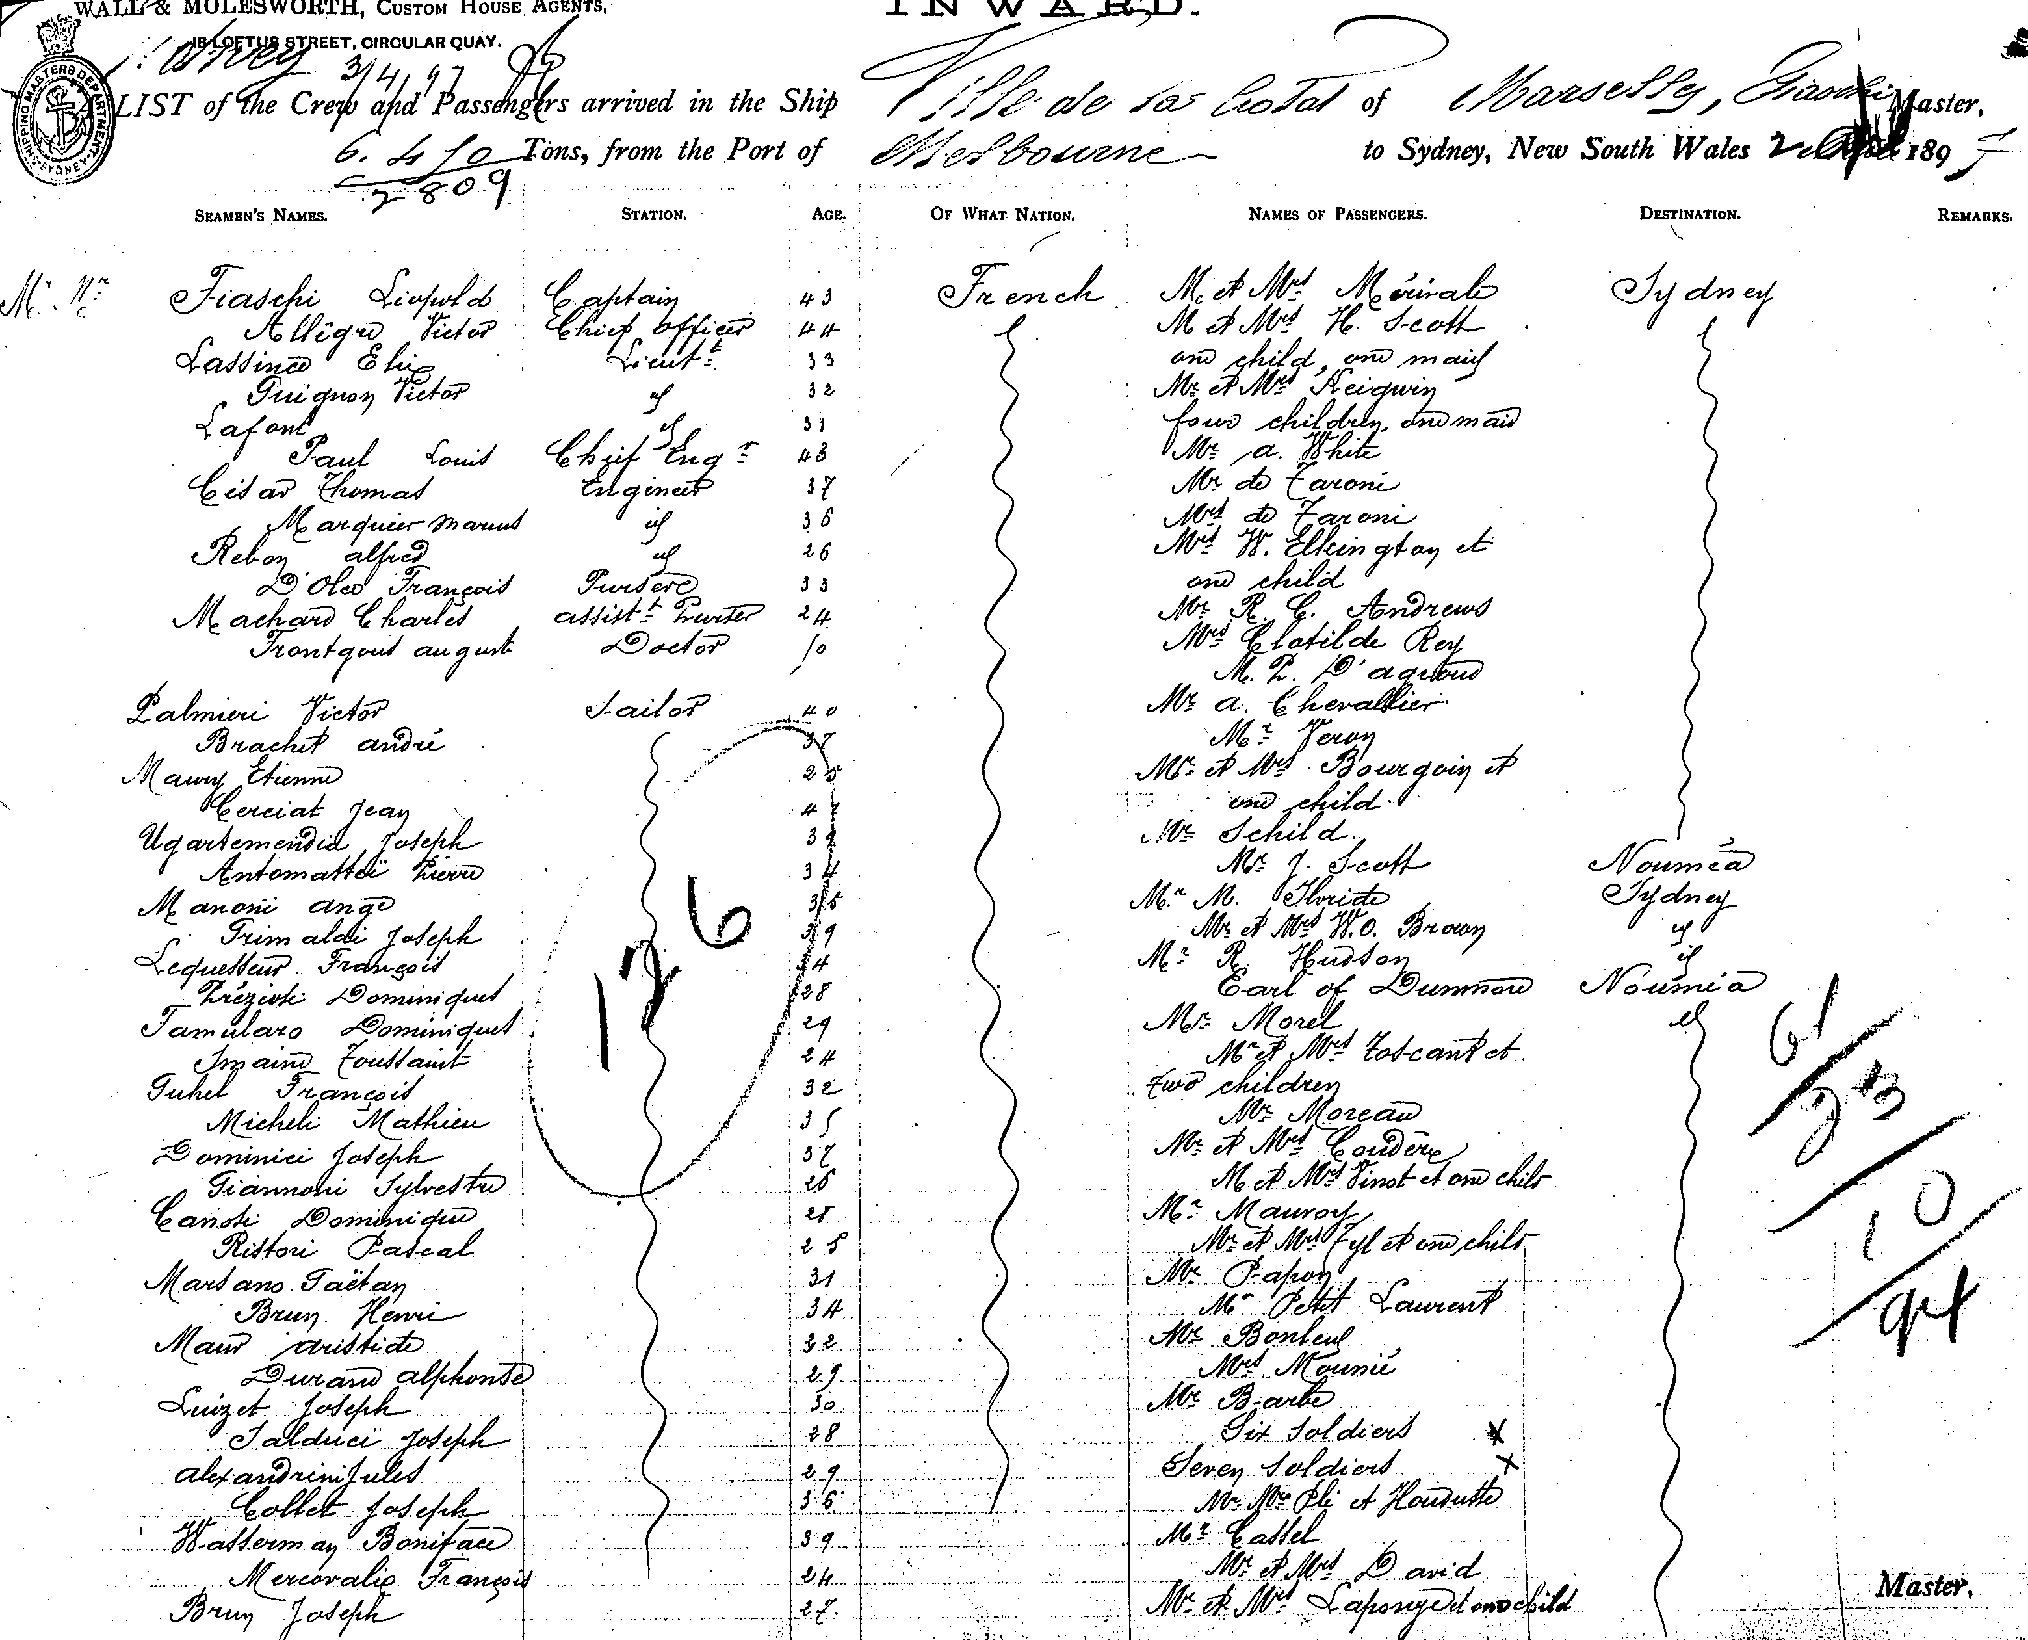 WALL & MOLESWORTH, CUSTOM HOUSE AGENTS,
INWARD.
18 LOFTUS STREET, CIRCULAR QUAY.
3/4/97
SHIPPING MASTERS DEPARTMENT SYDNEY
LIST of the Crew and Passengers arrived in the Ship Ville de La Ciotat of Marseille, Fiaschi Master,
6.410 Tons, from the Port of Melbourne to Sydney, New South Wales 2 1897
2809
SEAMEN'S NAMES. STATION. AGE. OF WHAT NATION. NAMES OF PASSENGERS. DESTINATION. REMARKS.
Fiaschi Léopold Captain 43 French M. et Mrs Mérivale Sydney
Allègre Victor Chief Officer 44 M et Mrs H. Scott
Lassince Elie Lieutt. 33 one child, one maid
Guignon Victor id 32 Mr. et Mrs Keigwin
Lafont id 31 four children, one maid
Paul Louis Chief Engr 43 Mr. A. White
César Thomas Engineer 37 Mr de Zaroni
Marquier Marius id 36 Mrs de Zaroni
Rebon Alfred id 26 Mrs W. Elkington et
D'Oleo François Pursere 33 one child
Machard Charles assistt. Purser 24 Mr. R. C. Andrews
Frontgous august Doctor 50 Mrs Clotilde Rey
M. P. D'
Palmieri Victor Sailor 40 Mr a. Chevallier
Brachet andré 37 Mr. Veron
Maury Etienne 25 Mr. et Mrs. Bourgoin et
Cerciat Jean 47 one child.
Ugartemendia Joseph 32 Mr. Schild.
Antomattéi Pierre 34 Mr. J. Scott Nouméa
Manoni ange 35 Mr. M. Floride Sydney
Grimaldi Joseph 39 Mr. et Mrs W.O. Brown id
Lequesseur François 24 Mr. R. Hudson id
Préziosi Dominique 28 Earl of Dunmore Nouméa
Tamularo Dominique 29 Mr. Morel id
Imaino Toussaint 24 Mr et Mrs Toscant et
Guhel François 32 two children
Micheli Mathieu 35 Mr. Moreau
Dominici Joseph 37 Mr. et Mrs Coudère
Giannoni Sylvestre 26 M et Mrs Vinot et one child
Canosi Dominique 25 Mr. Mauroy
Ristori Pascal 25 Mr. et Mrs Fyl et one child
Marsano Gaëtan 31 Mr. Papon
Brun Henri 34 Mr Petit Laurent
Maur aristide 32 Mr. Bonheul
Durand alphonse 29 Mrs Mounié
Luizet Joseph 30 Mr. Barbe
Salducci Joseph 28 Six Soldiers x
alexandrini Jules 29 Seven Soldiers x
Collet Joseph 36 Mr. Mr Pli et Houdutte
Wasserman Boniface 39 Mr. Cassel
Mercovalie François 24 Mr. et Mrs David
Brun Joseph 27 Mr. et Mrs Lapongé et one child
126
61
23
10
94
Master.